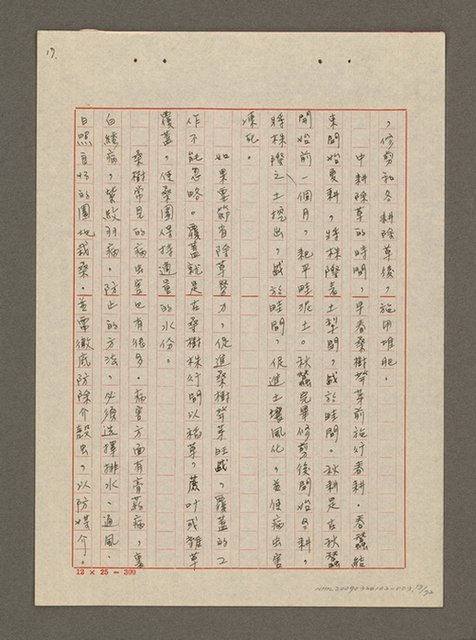 17.
，修剪和冬耕除草後，施用堆肥。
中耕除草的時間，早春桑樹發芽前施行春耕。春蠶結
束開始夏耕，將株際者土犁開，或於畦間。秋耕是在秋蠶
開始前一個月，耙平畦泥土。秋蠶完畢修剪後開始冬耕，
將株際之土挖出，或於畦間，促進土壤風化，並使病虫害
凍死。
如果要節省除草勞力，促進桑樹發芽旺盛，覆蓋的工
作不能忽略。覆蓋就是在桑樹株行間以稻草，蔗叶或雜草
覆蓋，使桑園保持適量的水份。
桑樹常見的病虫害也有很多。病害方面有膏葯病，裏
白縮病，紫紋羽病。防止的方法，必須选擇排水、通風、
日照良好的園地栽桑。並要徹底防除介殼虫，以防媒介。
12 × 25 = 300